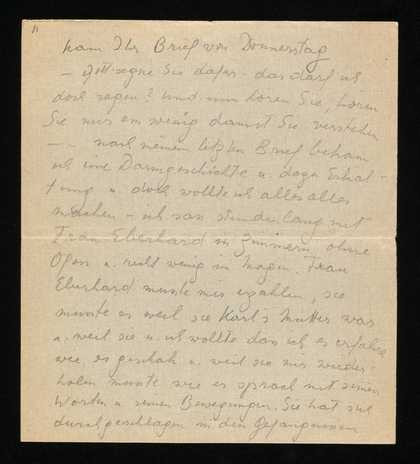 kam Ihr Brief von Donnerstag
– Gott segne Sie dafür – das darf ich
doch sagen? Und nun hören Sie, hören
Sie mir ein wenig damit Sie verstehen
– – nach meinem letzten Brief bekam
ich eine Darmgeschichte u. dazu Erkäl-
tung u. doch wollte ich alles alles
machen – ich sass stundenlang mit
Frau Eberhard in Zimmern, ohne
Ofen u. recht wenig im Magen. Frau
Eberhard musste mir erzählen, sie
musste es weil sie Karl's Mutter war
u. weil sie u. ich wollte das ich es erfahre
wie es geschah u. weil sie mir wieder
holen musste wie er sprach mit seinen
Worten u. seinen Bewegungen. Sie hat sich
durchgeschlagen in den Gefängnissen